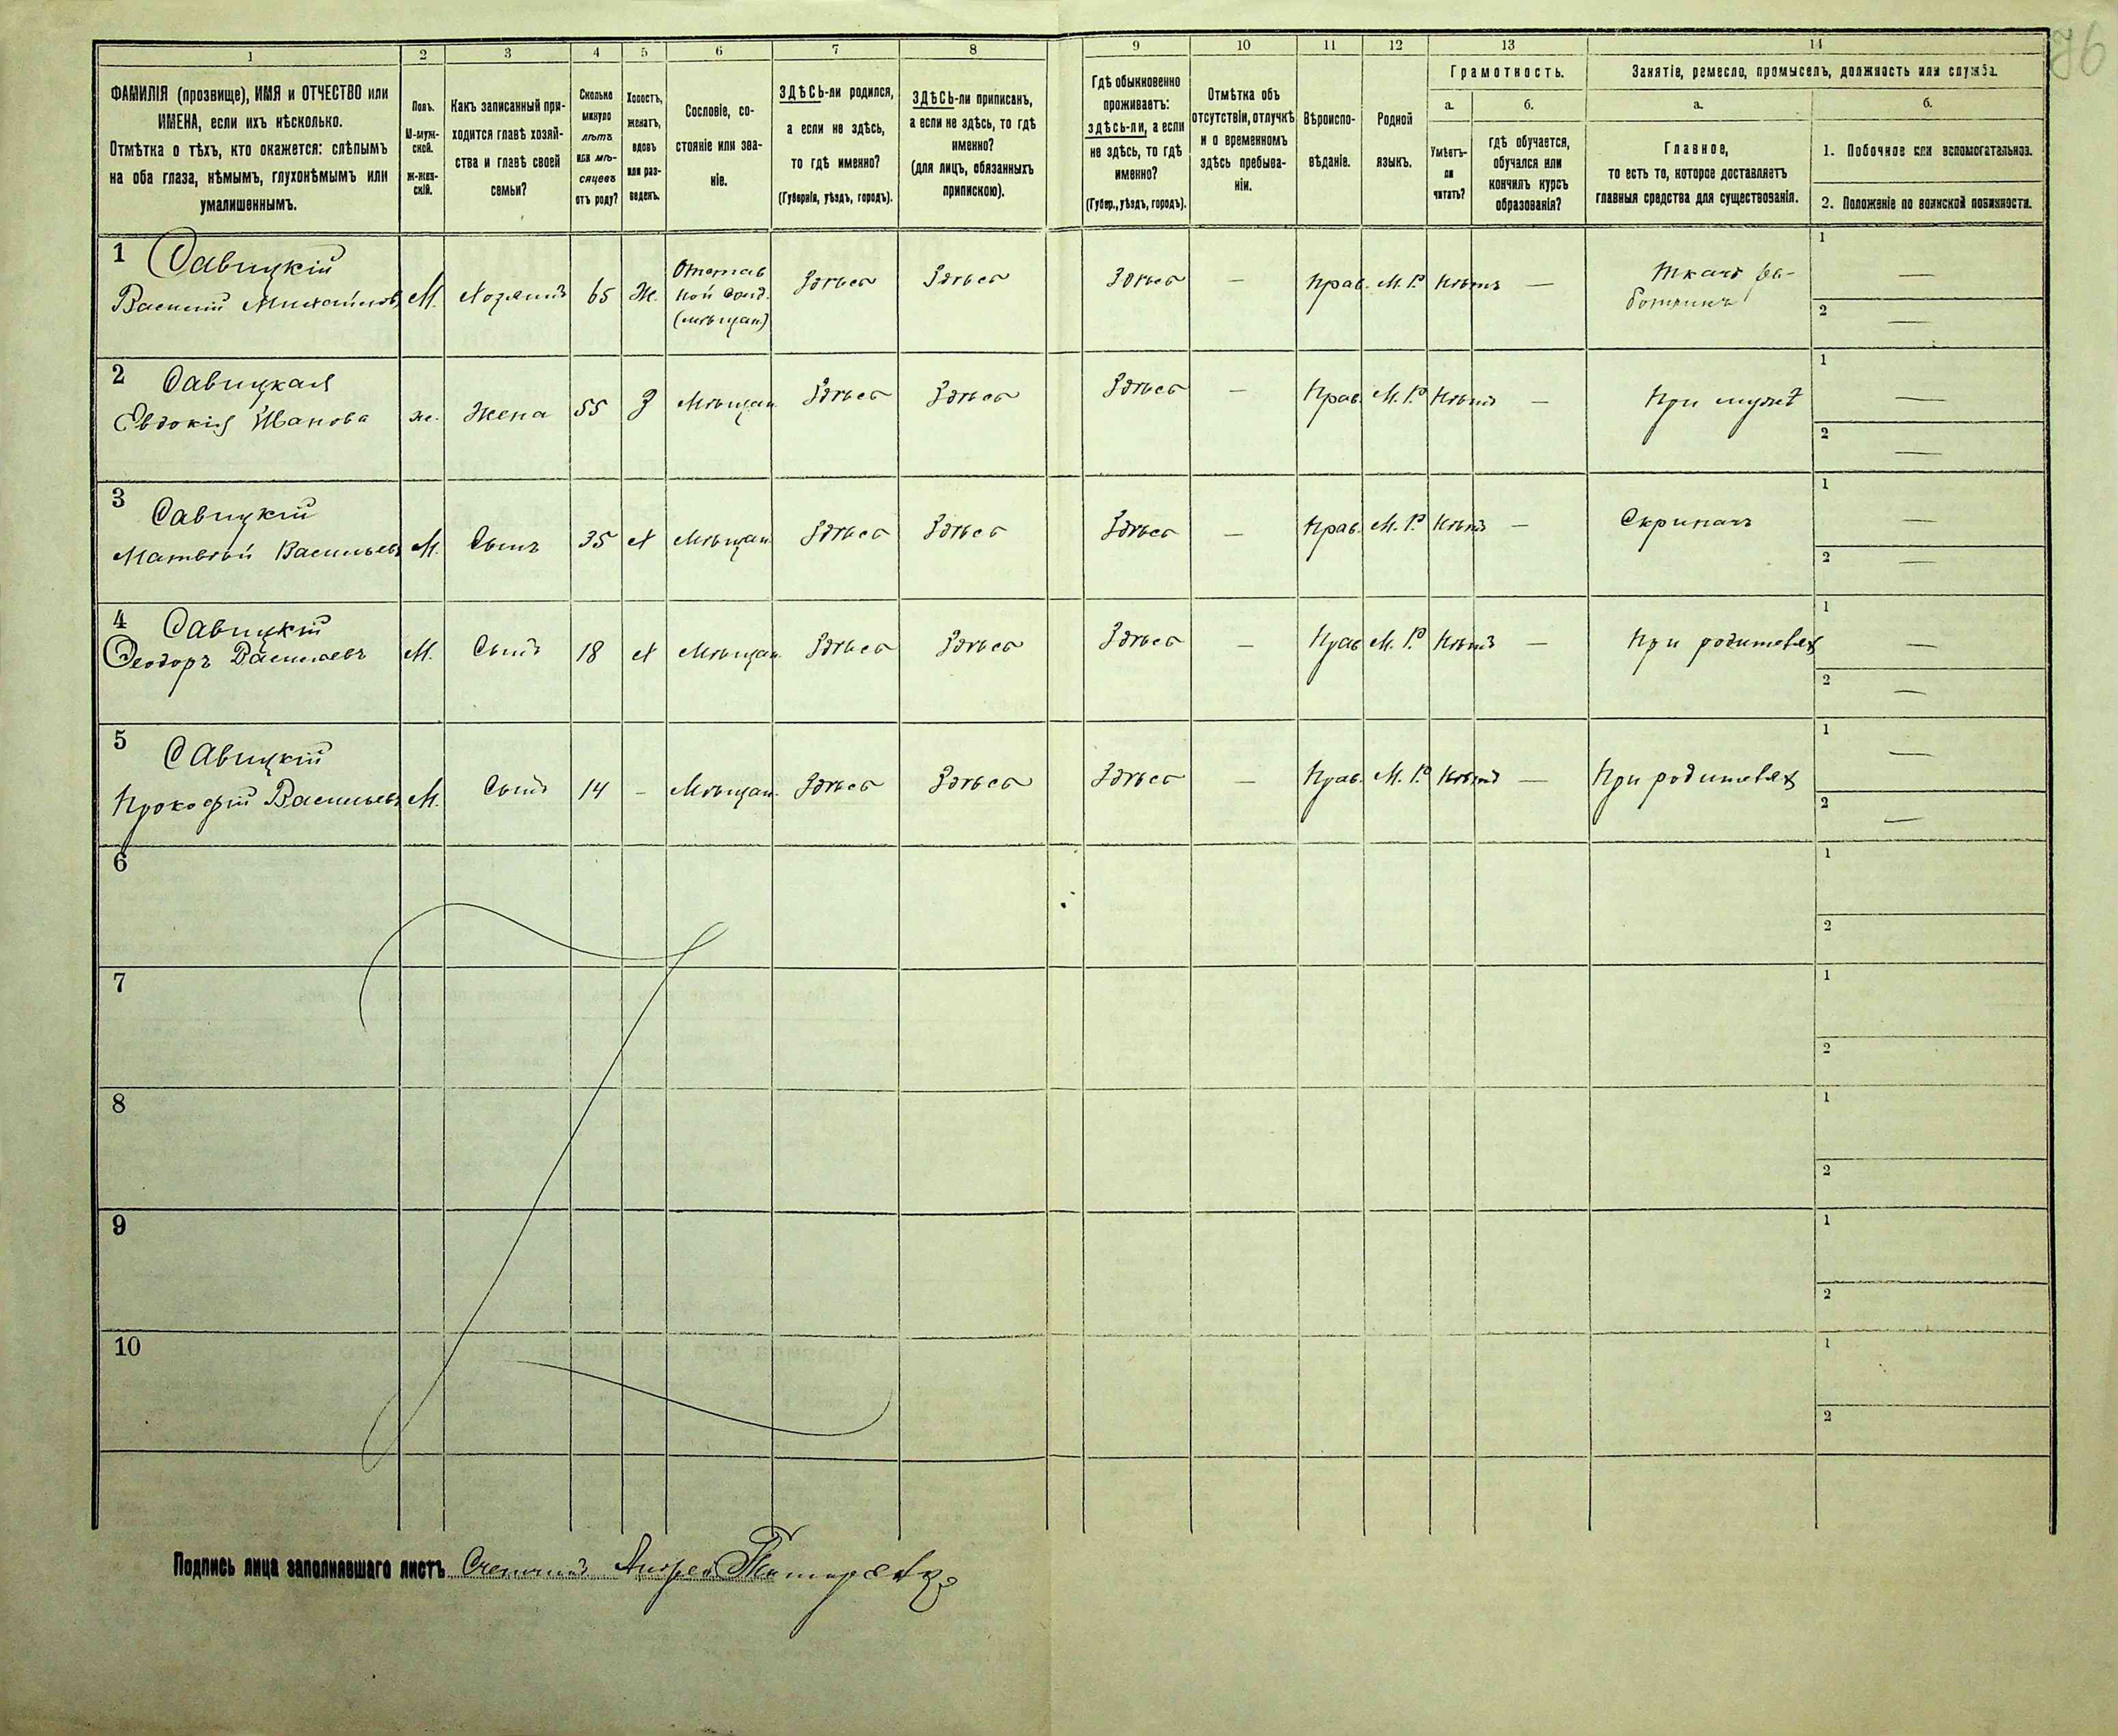 96
1 2 3 4 5 6 7 8 9 10 11 12 13 14
ФАМИЛІЯ (прозвище), ИМЯ и ОТЧЕСТВО или
ИМЕНА, если ихъ нѣсколько.
Отмѣтка о тѣхъ, кто окажется: слѣпымъ
на оба глаза, нѣмымъ, глухонѣмымъ или
умалишеннымъ.
Полъ.
М-муж-
ской.
Ж-жен-
скій.
Какъ записанный при-
ходится главѣ хозяй-
ства и главѣ своей
семьи?
Сколько
минуло
лѣтъ
или мѣ-
сяцевъ
отъ роду?
Холостъ,
женатъ,
вдовъ
или раз-
веденъ.
Сословіе, со-
стояніе или зва-
ніе.
ЗДѢСЬ-ли родился,
а если не здѣсь,
то гдѣ именно?
(Губернія, уѣздъ, городъ).
ЗДѢСЬ-ли приписанъ,
а если не здѣсь, то гдѣ
именно?
(для лицъ, обязанныхъ
припискою).
Гдѣ обыкновенно
проживаетъ:
здѣсь-ли, а если
не здѣсь, то гдѣ
именно?
(Губер., уѣздъ, городъ).
Отмѣтка объ
отсутствіи, отлучкѣ
и о временномъ
здѣсь пребыва-
ніи.
Вѣроиспо-
вѣданіе.
Родной
языкъ.
Грамотность.
а.
Умѣетъ-
ли
читать?
б.
гдѣ обучается,
обучался или
кончилъ курсъ
образованія?
Занятіе, ремесло, промыселъ, должность или служба.
а.
Главное,
то есть то, которое доставляетъ
главныя средства для существованія.
б.
1. Побочное или вспомогательное.
2. Положеніе по воинской повинности.
1 Савицкій
Василій Михайловъ М. Хозяинъ 65 Ж. Отстав
ной солд.
(мѣщан) Здѣсь Здѣсь Здѣсь — Прав. М. Р. Нѣтъ — Ткачъ ра-
ботникъ 1 —
2 —
2 Савицкая
Евдокія Иванова ж. Жена 55 З Мѣщан. Здѣсь Здѣсь Здѣсь — Прав. М. Р. Нѣтъ — При мужѣ 1 —
2 —
3 Савицкій
Матвѣй Васильевъ М. Сынъ 35 Х Мѣщан. Здѣсь Здѣсь Здѣсь — Прав. М. Р. Нѣтъ — Скрипачъ 1 —
2 —
4 Савицкій
Феодоръ Васильевъ М. Сынъ 18 Х Мѣщан. Здѣсь Здѣсь Здѣсь — Прав М. Р. Нѣтъ — При родителях 1 —
2 —
5 Савицкій
Прокофій Васильевъ М. Сынъ 14 - Мѣщан. Здѣсь Здѣсь Здѣсь — Прав. М. Р. Нѣтъ — При родителях 1 —
2 —
6 1
2
7 1
2
8 1
2
9 1
2
10 1
2
Подпись лица заполнявшаго листъ Счетчикъ Андрей